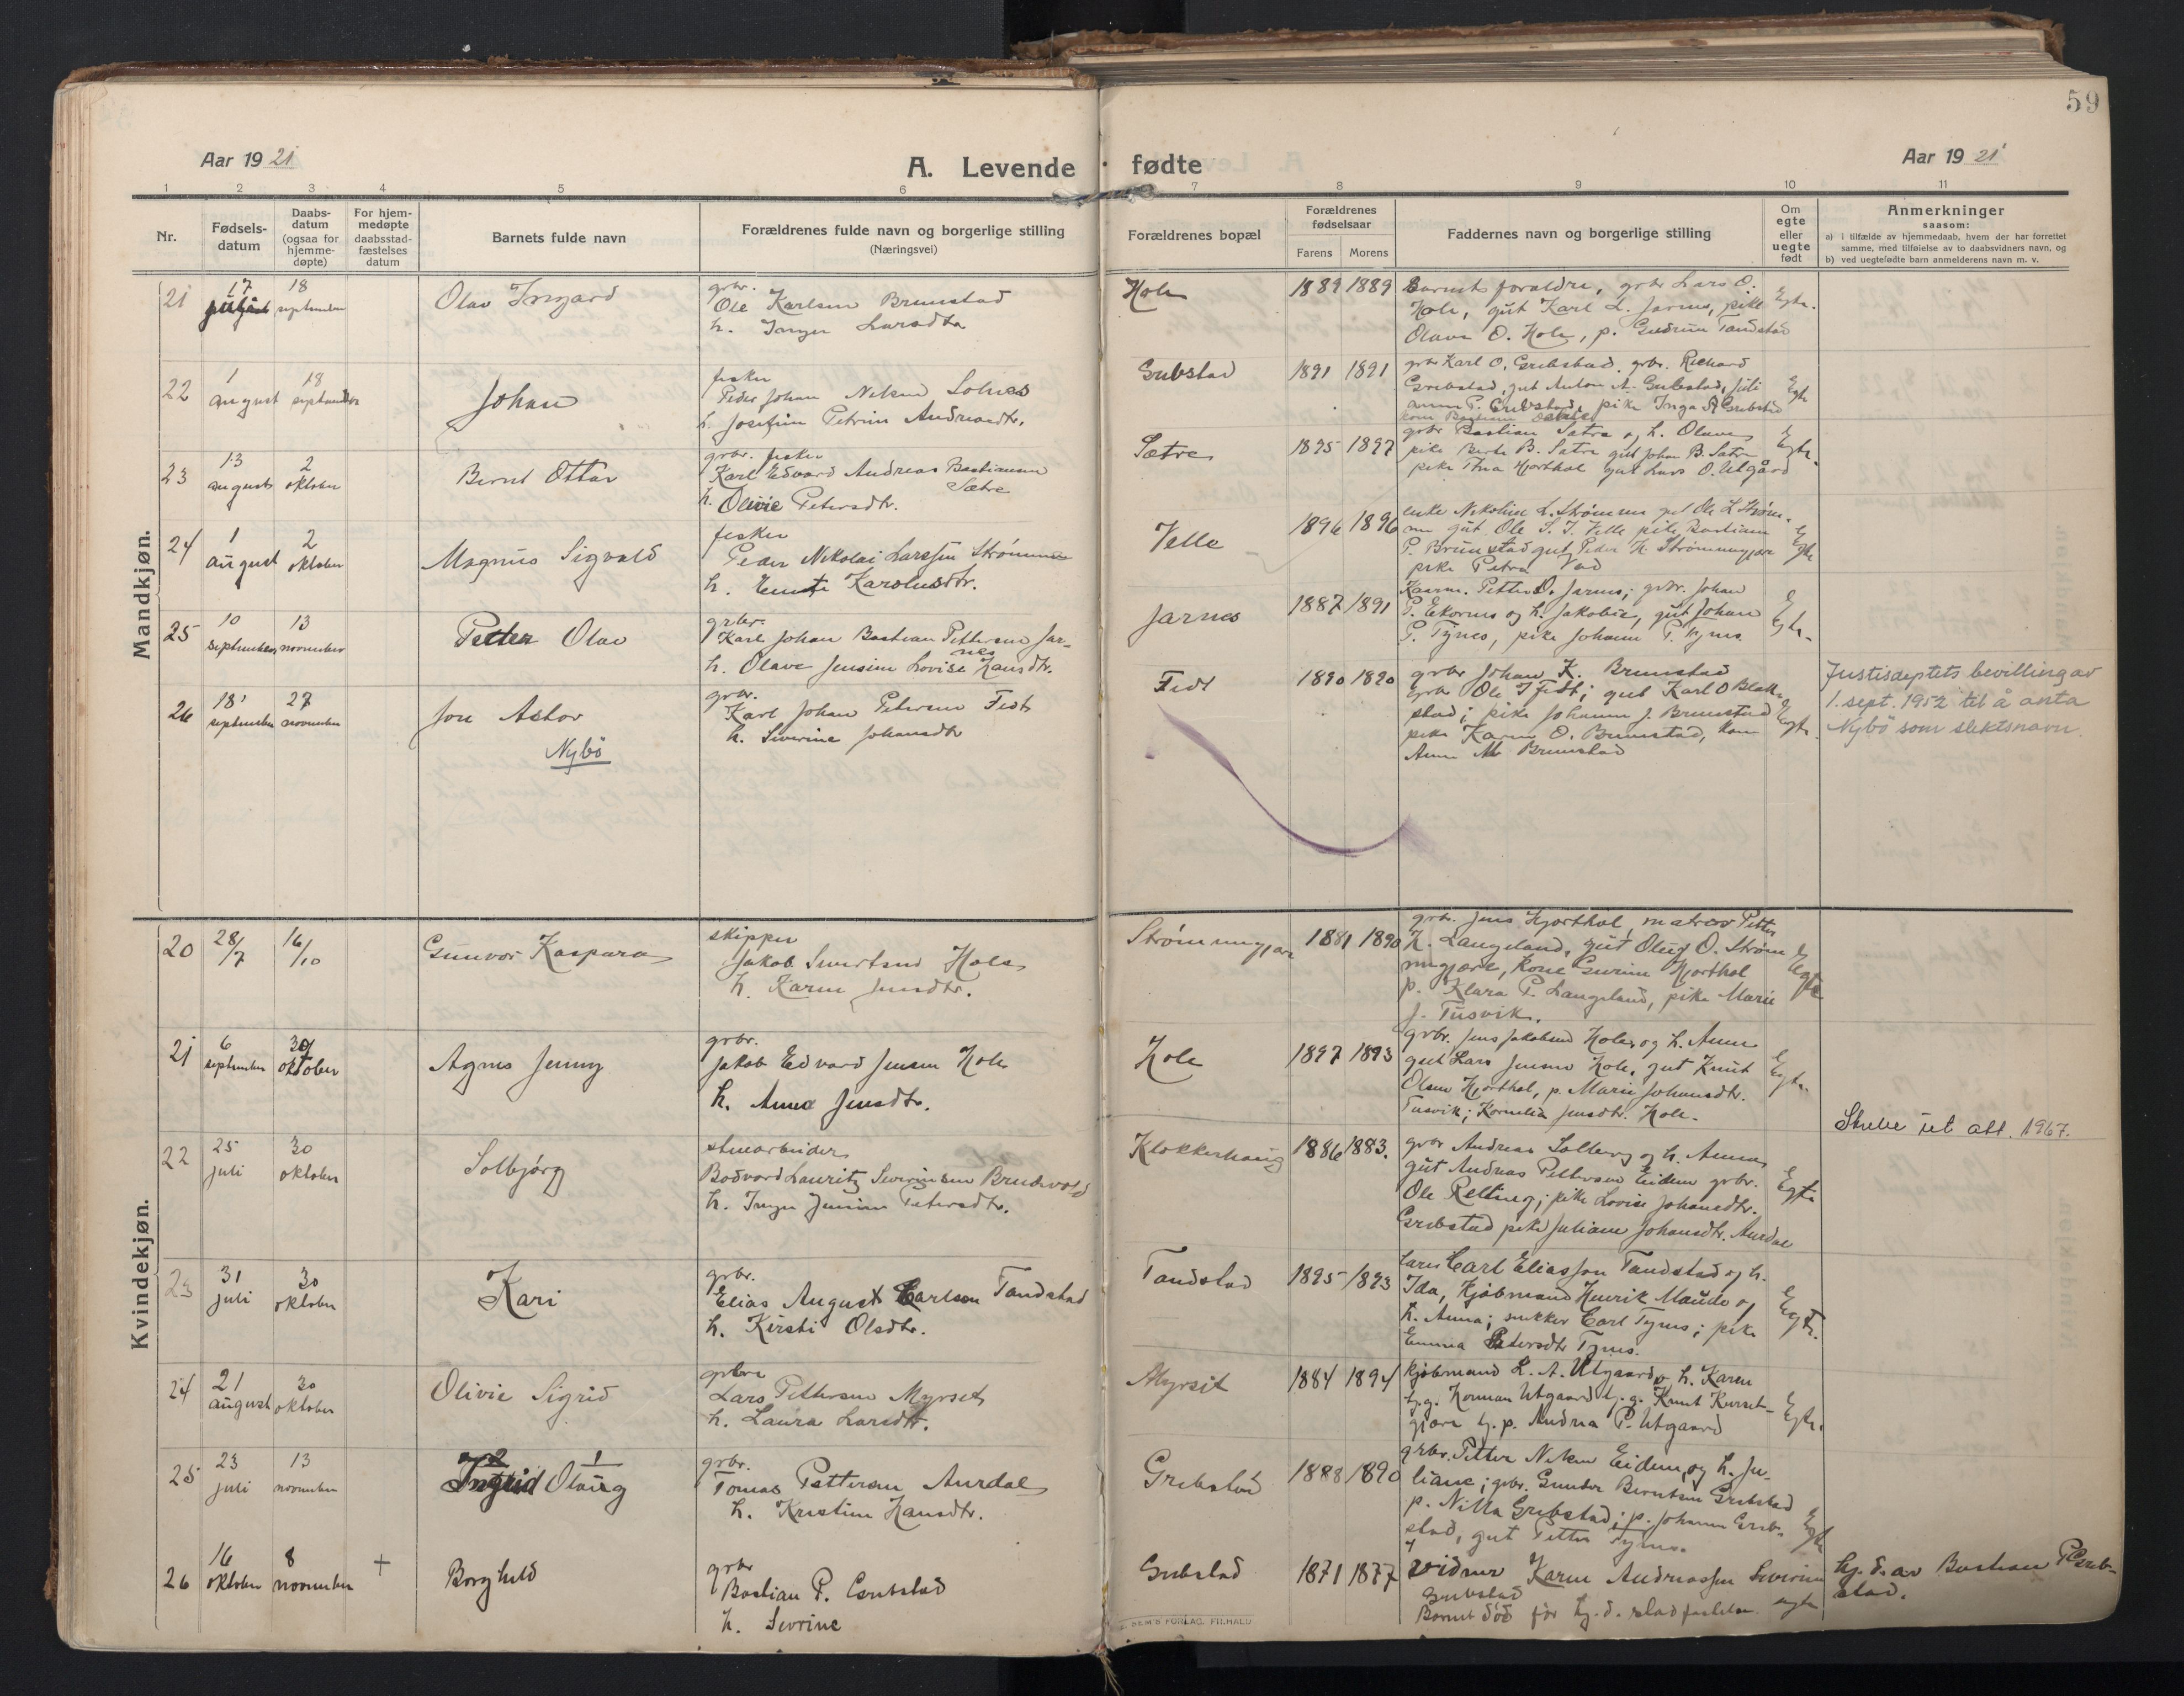 59
Aar 1921
A. Levende fødte
Aar 1921
1 2 3 4 5 6 7 8 9 10 11
Nr.
Fødsels-
datum
Daabs-
datum
(ogsaa for
hjemme-
døpte)
For hjem-
medøpte
daabsstad-
fæstelses
datum
Barnets fulde navn
Forældrenes fulde navn og borgerlige stilling
(Næringsvei)
Forældrenes bopæl
Forældrenes
fødselsaar
Farens Morens
Faddernes navn og borgerlige stilling
Om
egte
eller
uegte
født
Anmerkninger
saasom:
a) i tilfælde av hjemmedaab, hvem der har forrettet
samme, med tilføielse av to daabsvidners navn, og
b) ved uegtefødte barn anmelderens navn m. v.
Mandkjøn.
21 17 18 september
Olav Ingard
grbr.
Ole Karlsen Brunstad
h. Inger Larsdtr
Hole 1889 1889
Barnets foreldre, grbr Lars O.
Hole, gut Karl L. Jarnes, pike
Olave O. Hole, p. Gudrun Tandstad
Egte.
22 1 august 18 september
Johan
fisker
Peder Johan Nilsen Solnes
h. Josefine Petrine Andreasdtr.
Grebstad 1891 1891
grbr Karl O. Grebstad, grbr. Richard
Grebstad, gut Anton A. Grebstad,
Anna P. Grebstad, pike Inga A Grebstad
Egte
23 13 august 2 oktober
Bernt Ottar
grbr. fisker
Karl Edvard Andreas Bastiansen
Sætre
h. Olivie Petersdtr.
Sætre 1895 1897
grbr Bastian Sætre og h. Olave
pike Berte B. Sætre gut Johan B. Sætre
pike Thea Hjorthol gut Lars O. Utgård
Egte.
24 1 august 2 oktober
Magnus Sigvald
fisker
Peder Nikolai Larssen Strømmen
h. Karolusdtr.
Velle 1896 1896
enke Nikoline L. Strømmen gut Ole L Strøm-
men gut Ole S. J. Velle pike Bastiane
P. Brunstad gut Peder K. Strømmegjær
pike Petra Vad
Egte
25 10 september 13 november
Petter Olav
grbr.
Karl Johan Bastian Pettersen Jar-
nes
h. Olave Jensine Lovise Hansdtr.
Jarnes 1887 1891
Kaarm. Petter O. Jarnes; grbr. Johan
P. Ekornes og h. Jakobie, gut Johan
P. Tynes, pike Johanne P. Tynes
Egte.
26 18 september 27 november
Jon Astor
Nybö
grbr.
Karl Johan Petersen Fedt
h. Severine Johansdtr
Fedt 1890 1890
grbr Johan K. Brunstad
grbr Ole J Fedt; gut Karl O Blak-
stad; pike Johanne J. Brunstad
pike Karen O. Brunstad, kone
Anne M Brunstad
Egte.
Justisdeptets bevilling av
1. sept. 1952 til å anta
Nybö som slektsnavn.
Kvindekjøn.
20 28/7 16/10
Gunvor Kaspara
skipper
Jakob Sivertsen Hole
h. Karen Jensdtr.
Strømmegjære 1881 1890
grbr. Jens Hjorthol, matros Petter
K. Langeland, gut Oluf O. Strøm
megjære, kone Severine Hjorthol
p. Klara P. Langeland, pike Marie
J. Tusvik.
Egte
21 6 september 30 oktober
Agnes Jenny
grbr.
Jakob Edvard Jensen Hole
h. Anna Jensdtr.
Hole 1897 1893
grbr. Jens Jakobsen Hole og h. Anne
gut Lars Jensen Hole, gut Knut
Olsen Hjorthol, p. Marie Johansdtr.
Tusvik; Kornelia Jensdtr. Hole.
Egte.
22 25 juli 30 oktober
Solbjørg
stuearbeider
Bodvard Lauritz Severinsen Brudevold
h. Inger Jensine Petersdtr.
Klokkerhaug 1886 1883.
grbr Andreas Solberg og h. Anna
gut Andreas Pettersen Eidem grbr.
Ole Relling; pike Lovise Johansdtr.
Grebstad pike Juliane Johansdtr. Aurdal
Egte
att. 1967.
23 31 juli 30 oktober
Kari
grbr.
Elias August Carlsen Tandstad
h. Kirsti Olsdtr.
Tandstad 1895 1893
Carl Eliassen Tandstad og h.
Ida, Kjøbmand Henrik Maude og
h. Anna; snekker Carl Tynes; pike
Emma Petersdtr Tynes.
Egte.
24 21 august 30 oktober
Olivie Sigrid
grbr
Lars Pettersen Myrset
h. Laura Larsdtr.
Myrset 1884 1894
kjøbmand L. A. Utgaard og h. Karen
Herman Utgaard Knut Kurset-
gjære p. Andrea P. Utgaard
Egte.
25 23 juli 13 november
2 1
Ingrid Olaug
grbr.
Tomas Pettersen Aurdal
h. Kristine Hansdtr.
Grebstad 1888 1890
grbr. Petter Nilsen Eidem, og h. Ju-
liane; grbr. Gunder Berntsen Grebstad
p. Nilla Grebstad; p. Johanne Greb-
stad, gut Petter Tynes.
Egte
26 16 oktober 8 november +
Borghild
grbr
Bastian P. Grebstad
h. Sevrine
Grebstad 1871 1877
vidner Karen Andreassen Severine
Grebstad
Barnet död før hj. d. stadfestelse.
egte
hj. d. av Bastian P Greb-
stad.
SEM'S FORLAG, F.HALD